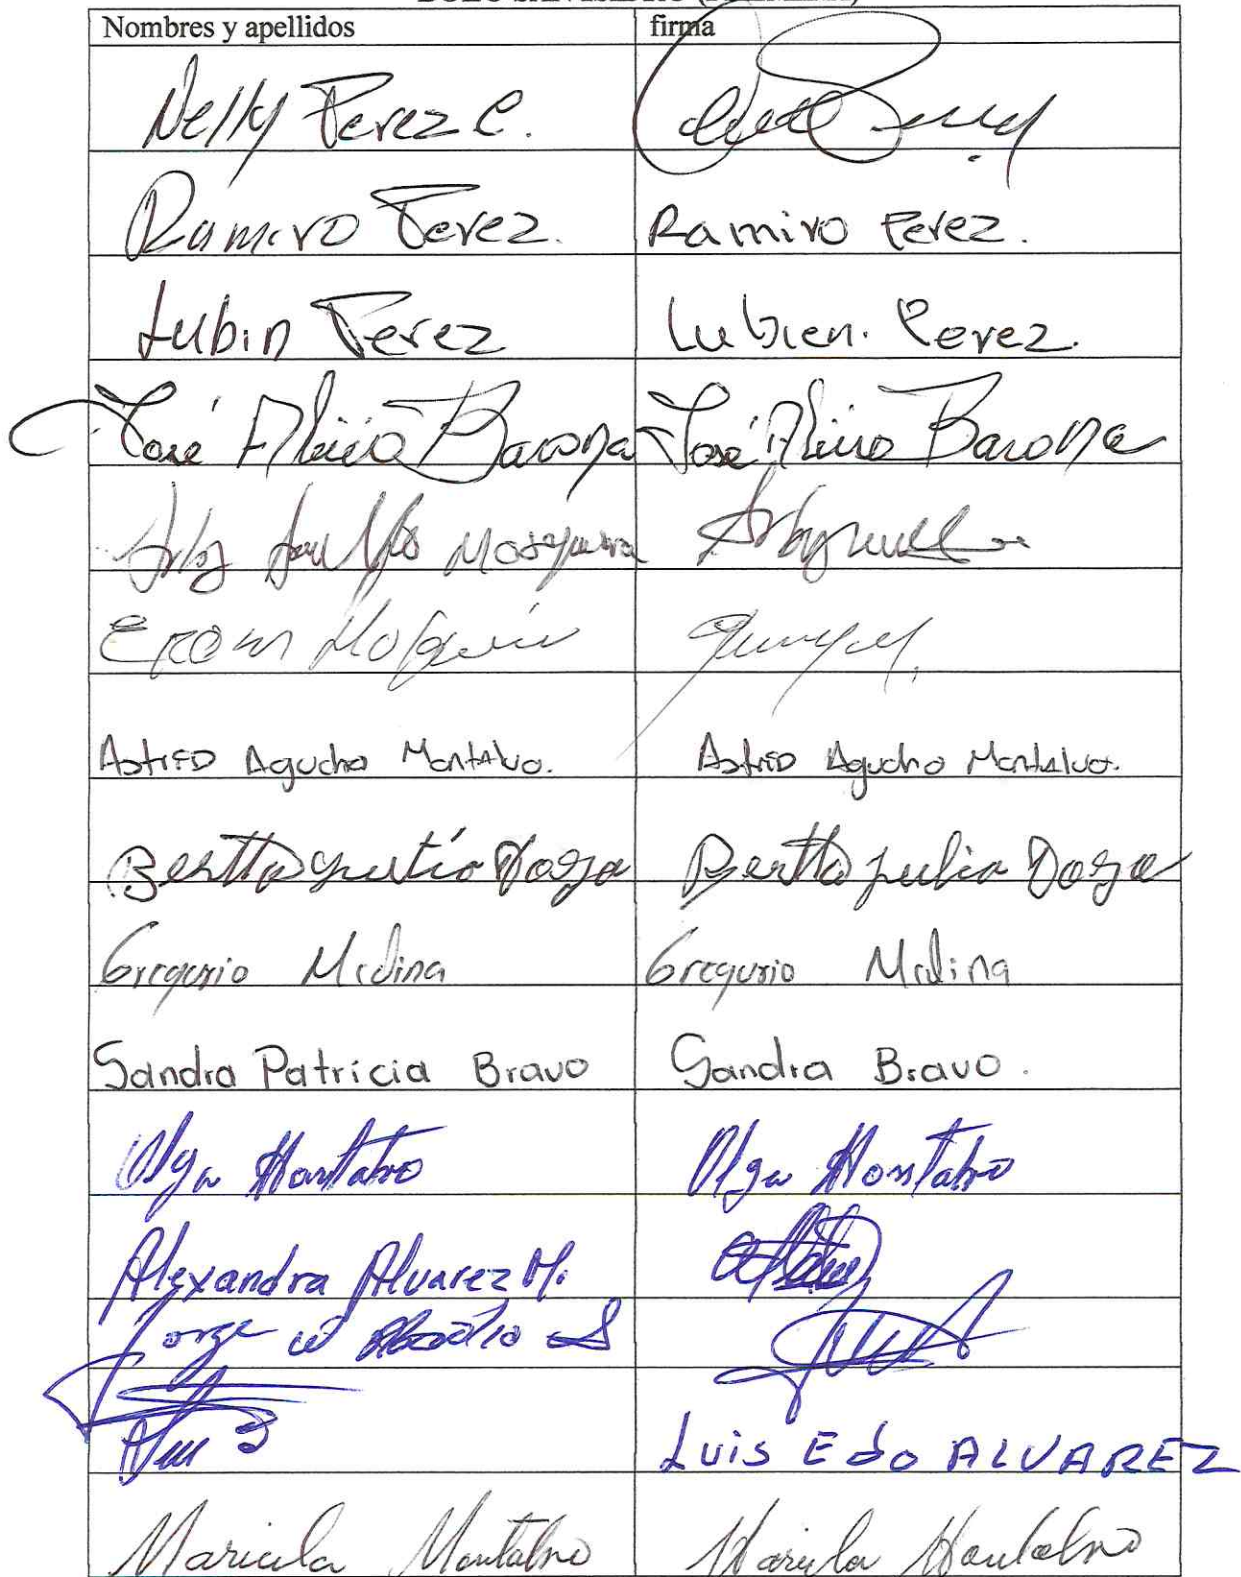 Nombres y apellidos firma
Nelly Perez C.
Ramiro Perez. Ramiro Perez.
Lubin Perez Lubien. Perez.
José Alirio Barona José Alirio Barona
Mosquera
Astrid Agucho Montalvo. Astrid Agucho Montalvo.
Bertha Julia Daza
Gregorio Medina Gregorio Medina
Sandra Patricia Bravo Sandra Bravo.
Olga Montalvo Olga Montalvo
Alexandra Alvarez M.
Jorge
LUIS Edo ALVAREZ
Maricela Montalvo Maricela Montalvo